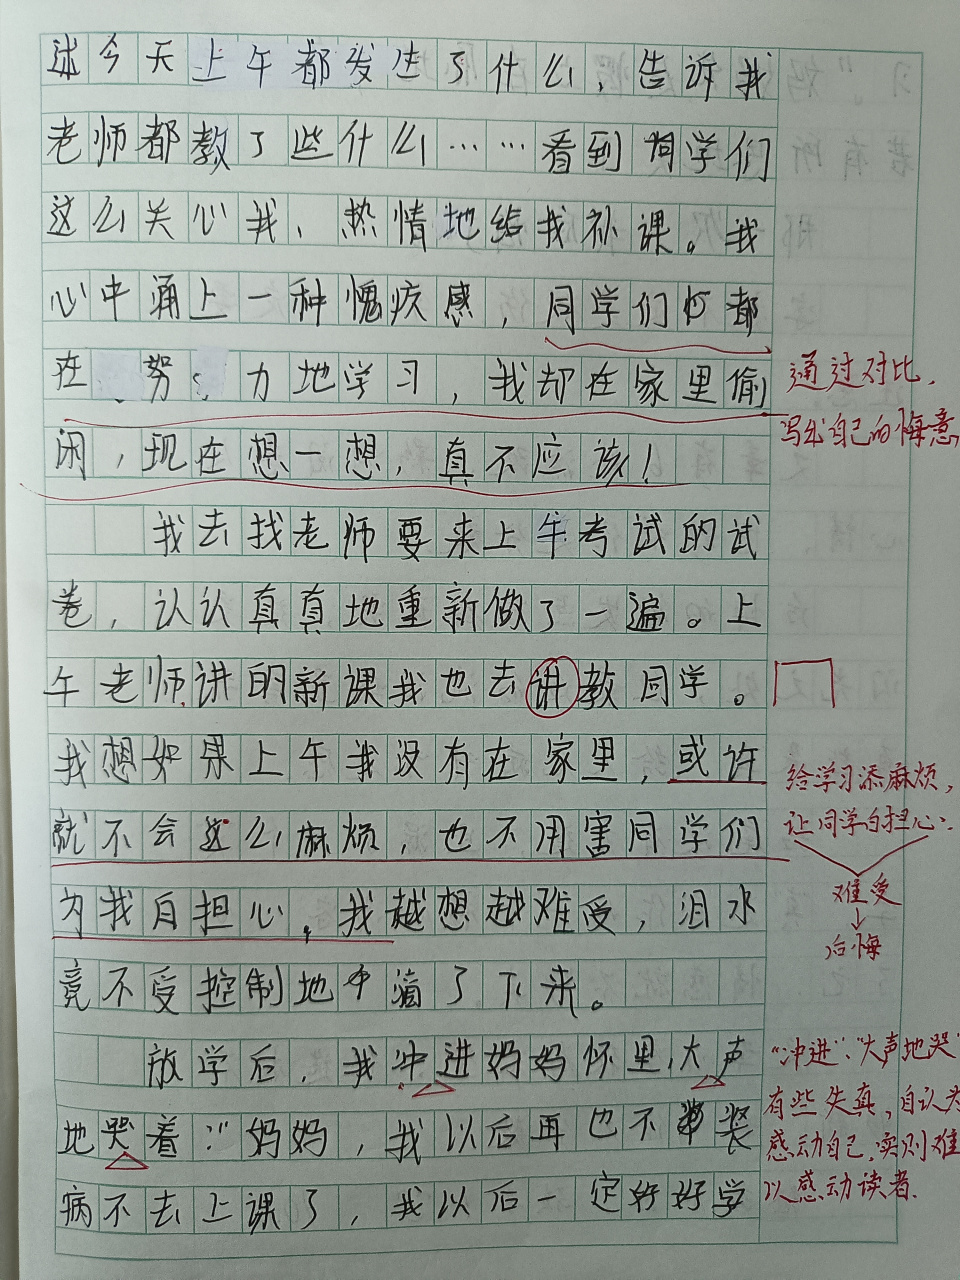 述今天上午都发生了什么，告诉我
老师都教了些什么……看到同学们
这么关心我、热情地给我补课。我
心中涌上一种愧疚感，同学们都
在努力地学习，我却在家里偷
闲，现在想一想，真不应该！
通过对比，
写出自己的悔意
我去找老师要来上午考试的试
卷，认认真真地重新做了一遍。上
午老师讲的新课我也去讲教同学。
我想如果上午我没有在家里，或许
就不会这么麻烦，也不用害同学们
为我白担心，我越想越难受，泪水
竟不受控制地滴了下来。
给学习添麻烦，
让同学白担心
难受
↓
后悔
放学后，我冲进妈妈怀里，大声
地哭着："妈妈，我以后再也不装
病不去上课了，我以后一定好好学
"冲进"、"大声地哭"
有些失真，自认为
感动自己，实则难
以感动读者．